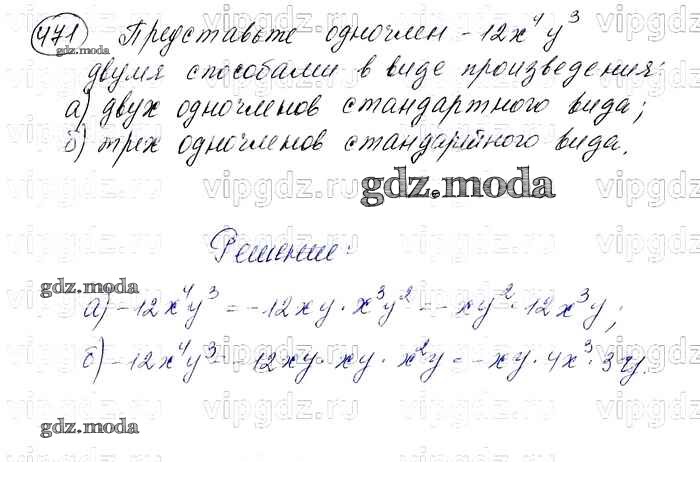 471 Представьте одночлен -12x⁴y³
двумя способами в виде произведения:
а) двух одночленов стандартного вида;
б) трех одночленов стандартного вида.
gdz.moda
Решение:
а) -12x⁴y³ = -12xy · x³y² = -xy² · 12x³y;
б) -12x⁴y³ = -12xy · xy · x²y = -xy · 4x³ · 3y.
gdz.moda
gdz.moda
gdz.moda
vipgdz.ru